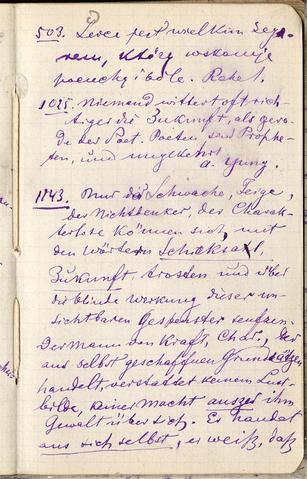 503. Serce jest wielkim Zega
rem, który wskazuje
pociechy i bóle. Rahel.
1025. Niemand wittert oft rich-
tiger die Zukunft, als gera-
de der Poet. Poeten sind Prophe-
ten, und umgekehrt.
A. Jung.
1143. Nur der Schwache, Feige,
der Nichtdenker, der Charak-
terlose können sich mit
den Wörtern Schicksal,
Zukunft trosten und über
die blinde Wirkung dieser un-
sichtbaren Gespenster seufzen.
Der Mann von Kraft, Char., der
aus selbst geschaffnen Grundsätzen
handelt, verstattet keinem Luft-
bilde, keiner Macht auszer ihm
Gewalt über sich. Er handelt
aus sich selbst, er weiß, daß